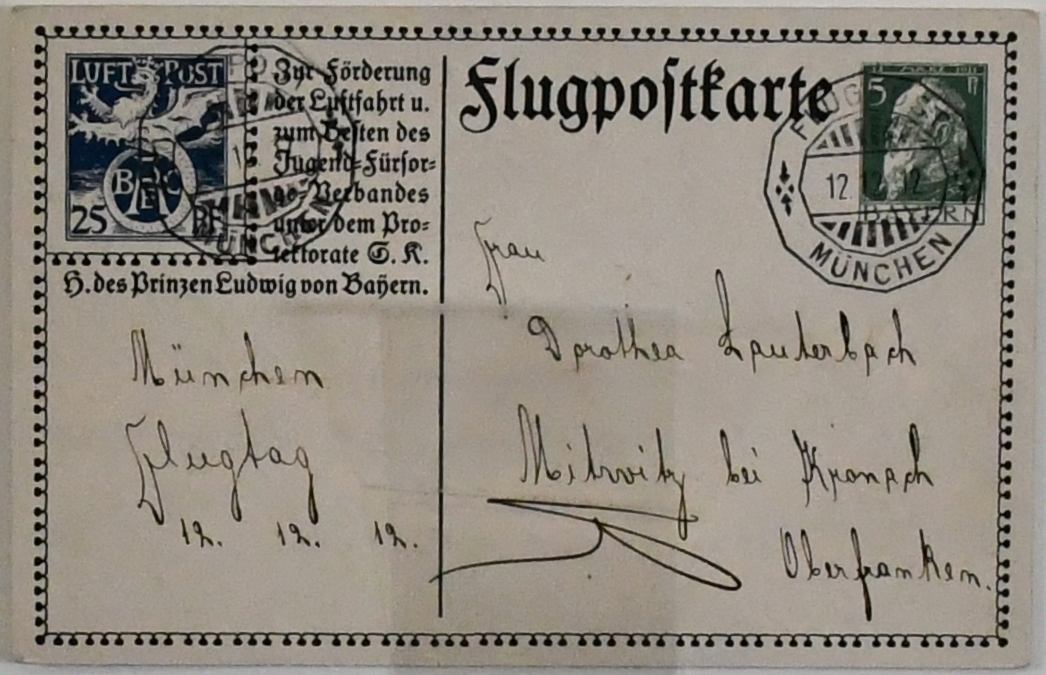 LUFT POST
BAEC
25 PF
Zur Förderung
der Luftfahrt u.
zum Besten des
Jugend-Fürsor-
ge-Verbandes
unter dem Pro-
tektorate S. K.
H. des Prinzen Ludwig von Bayern.
MÜNCHEN
Flugpostkarte
12 MÄRZ 1911
5 Pf
BAYERN
12.12.12
MÜNCHEN
Frau
Dorothea Lauterbach
Mitwitz bei Kronach
Oberfranken.
München
Flugtag
12. 12. 12.